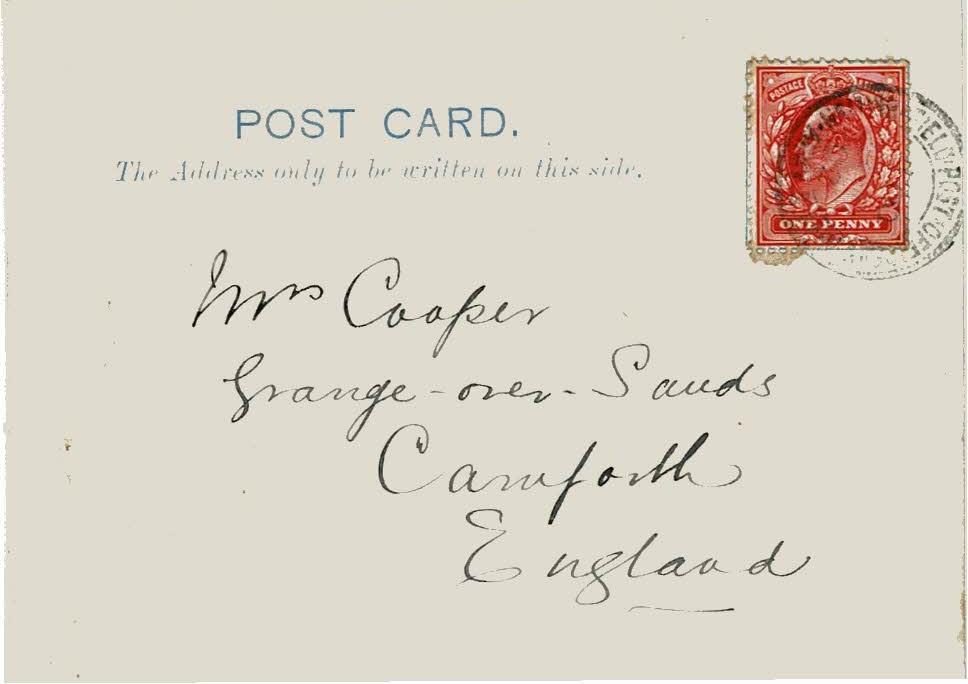 POST CARD.
The Address only to be written on this side.
POSTAGE
ONE PENNY
FIELD·POST·OFF
Mrs Cooper
Grange-over-Sands
Carnforth
England